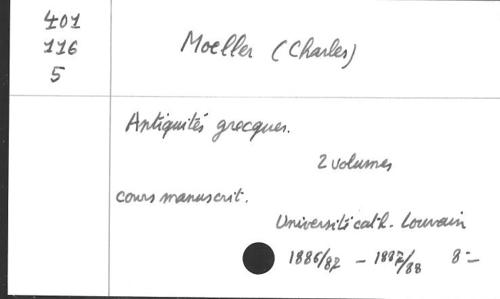 401
116
5
Moeller (Charles)
Antiquités grecques.
2 volumes
cours manuscrit.
Université cath. Louvain
1886/87 - 1887/88 8=